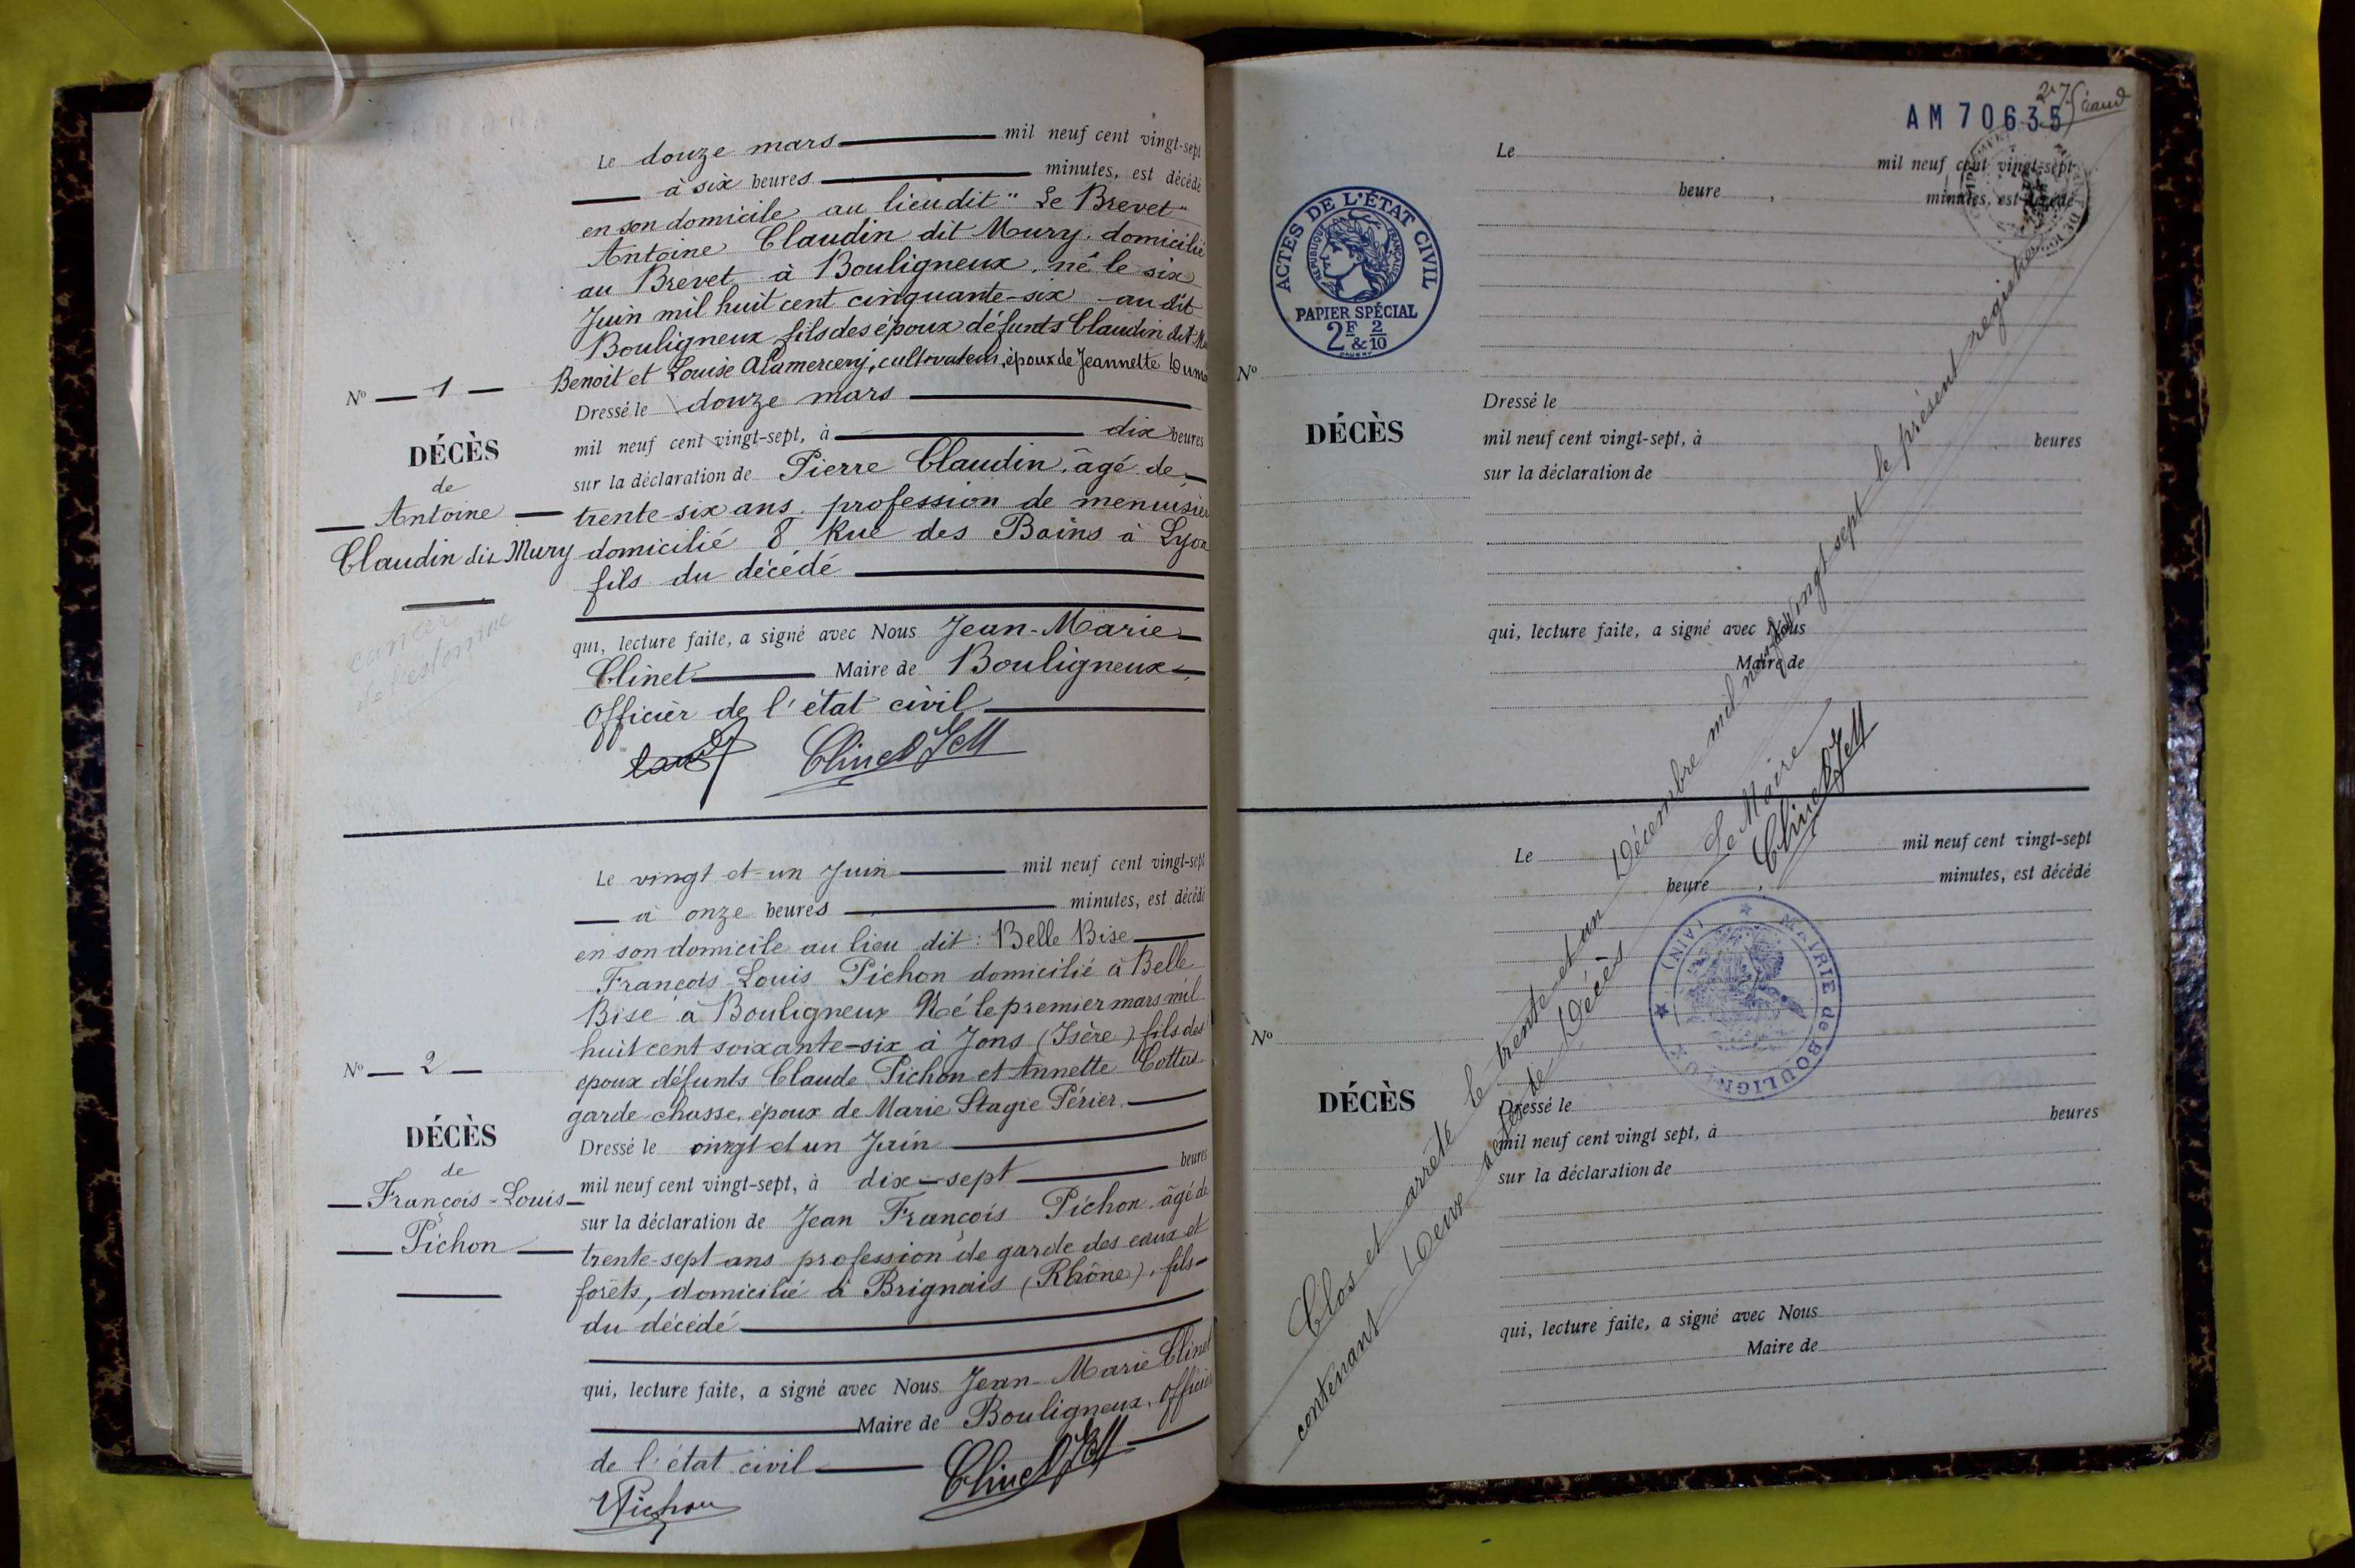 Le douze mars mil neuf cent vingt-sept
à six heures minutes, est décédé
en son domicile au lieu dit "Le Brevet"
Antoine Claudin dit Mury, domicilié
au Brevet à Bouligneux, né le six
Juin mil huit cent cinquante-six au dit
Bouligneux fils des époux défunts Claudin dit
Benoit et Louise Alamercery, cultivateur, époux de Jeannette
N° 1
DÉCÈS
de
Antoine
Claudin dit Mury
cancer
de l'estomac
Dressé le douze mars
mil neuf cent vingt-sept, à dix heures
sur la déclaration de Pierre Claudin, âgé de
trente-six ans, profession de menuisier
domicilié 8 Rue des Bains à Lyon
fils du décédé
qui, lecture faite, a signé avec Nous Jean-Marie
Clinet Maire de Bouligneux,
Officier de l'état civil
Clinet JM
Le vingt et un Juin mil neuf cent vingt-sept
à onze heures minutes, est décédé
en son domicile au lieu dit : Belle Bise
François-Louis Pichon domicilié à Belle
Bise à Bouligneux Né le premier mars mil
huit cent soixante-six à Jons (Isère) fils des
époux défunts Claude Pichon et Annette Cottus
garde-chasse, époux de Marie Stagie Périer.
N° 2
DÉCÈS
de
François-Louis
Pichon
Dressé le vingt et un Juin
mil neuf cent vingt-sept, à dix-sept heures
sur la déclaration de Jean François Pichon, âgé de
trente-sept ans profession de garde des eaux et
forêts, domicilié à Brignais (Rhône), fils
du décédé
qui, lecture faite, a signé avec Nous Jean-Marie Clinet
Maire de Bouligneux, Officier
de l'état civil
Clinet JM
Pichon
AM 70635
ACTES DE L'ÉTAT CIVIL
RÉPUBLIQUE FRANÇAISE
PAPIER SPÉCIAL
2F & 2/10
Le mil neuf cent vingt-sept
heure minutes, est décédé
N°
DÉCÈS
Dressé le
mil neuf cent vingt-sept, à heures
sur la déclaration de
qui, lecture faite, a signé avec Nous
Maire de
Clos et arrêté le trente et un Décembre mil neuf cent vingt sept le présent registre
contenant Deux actes de Décès
Le Maire
Clinet JM
Le mil neuf cent vingt-sept
heure minutes, est décédé
MAIRIE de BOULIGNEUX (AIN)
N°
DÉCÈS
Dressé le
mil neuf cent vingt sept, à heures
sur la déclaration de
qui, lecture faite, a signé avec Nous
Maire de